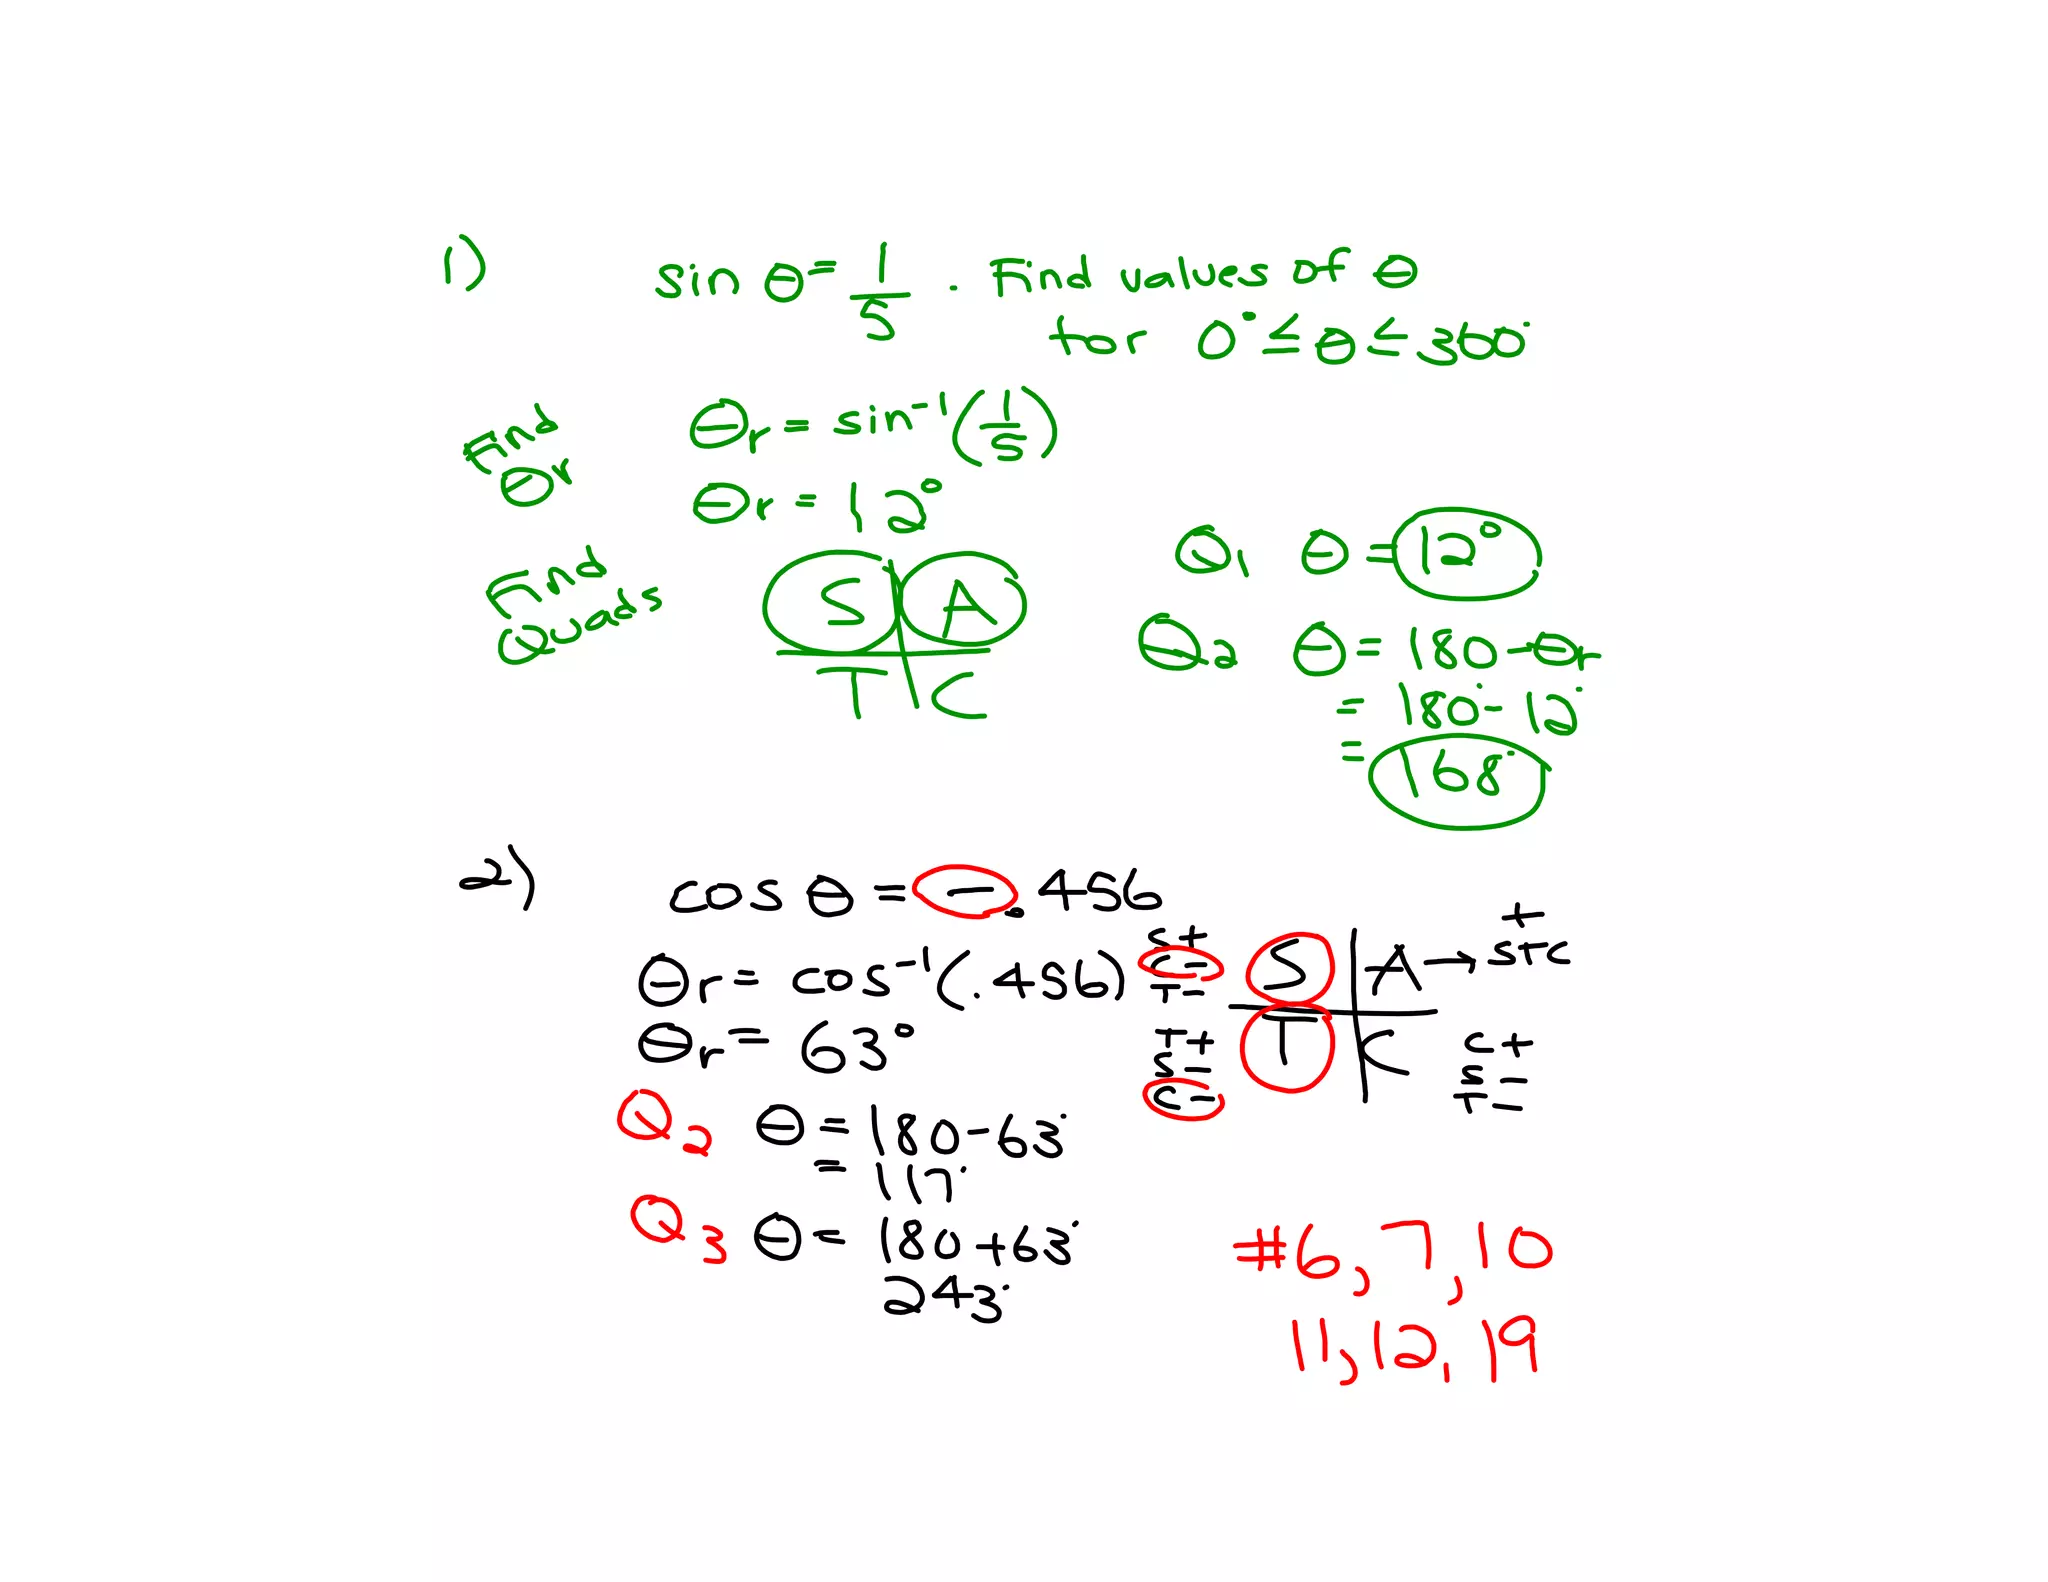 1) sin θ = 1/5 . Find values of θ
for 0° ≤ θ ≤ 360°
Find θr
θr = sin⁻¹(1/5)
θr = 12°
Find Quads
S A
T C
Q1 θ = 12°
Q2 θ = 180 - θr
= 180° - 12°
= 168°
2) cos θ = -.456
θr = cos⁻¹(.456)
θr = 63°
S+
C-
T-
S A → STC +
T C
T+
S-
C-
C+
S-
T-
Q2 θ = 180 - 63°
= 117°
Q3 θ = 180 + 63°
243°
#6, 7, 10
11, 12, 19